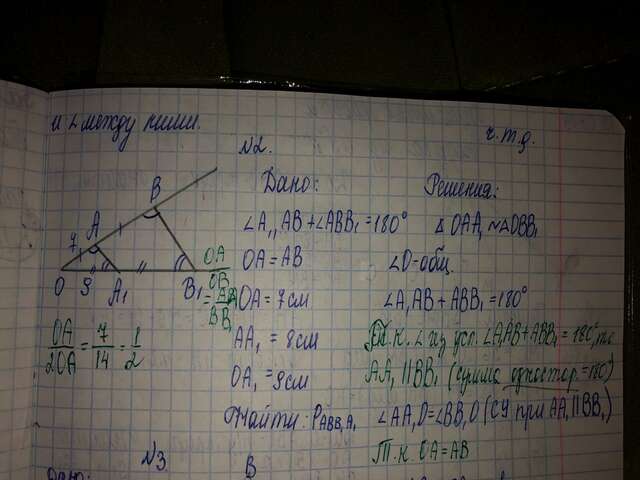 и ∠ между ними.
ч.т.д.
N2.
Дано:
∠A₁AB+∠ABB₁=180°
OA=AB
OA=7см
AA₁=8см
OA₁=9см
Найти: PABB₁A₁
Решения:
△OAA₁~△OBB₁
∠O-общ.
∠A₁AB+ABB₁=180°
Т.к. ∠ из усл. ∠A₁AB+ABB₁=180°, то
AA₁||BB₁ (сумма одностор.=180°)
∠AA₁O=∠BB₁O (СУ при AA₁||BB₁)
Т.к. OA=AB
B
A
7
O
9
A₁
B₁
OA/OB=AA₁/BB₁
OA/2OA=7/14=1/2
N3
B
Дано: